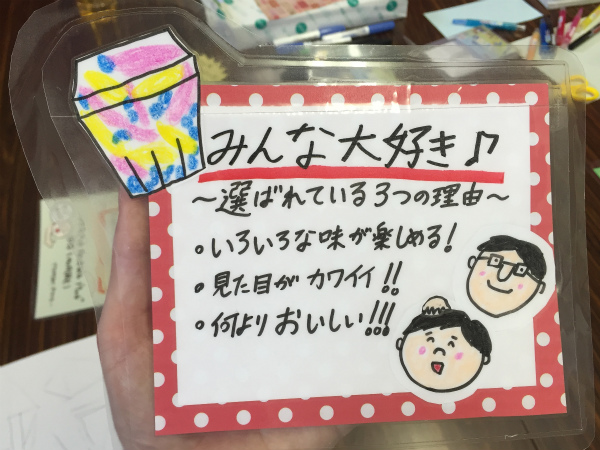 みんな大好き♪
～選ばれている3つの理由～
・いろいろな味が楽しめる!
・見た目がカワイイ!!
・何よりおいしい!!!